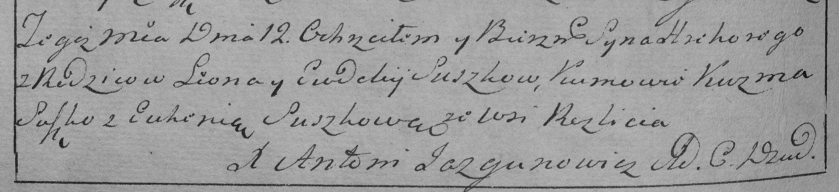 Tegoż Mca Dnia 12. Ochrzciłem y Bierzm: Syna Hrehorego
z Rodzicow Leona y Ewdokij Suszkow, Kumowie Kuzma
Suszko z Euhenią Suszkową ze wsi Rezlicia
X Antoni Jazgunowicz Ad. C. Dzied.